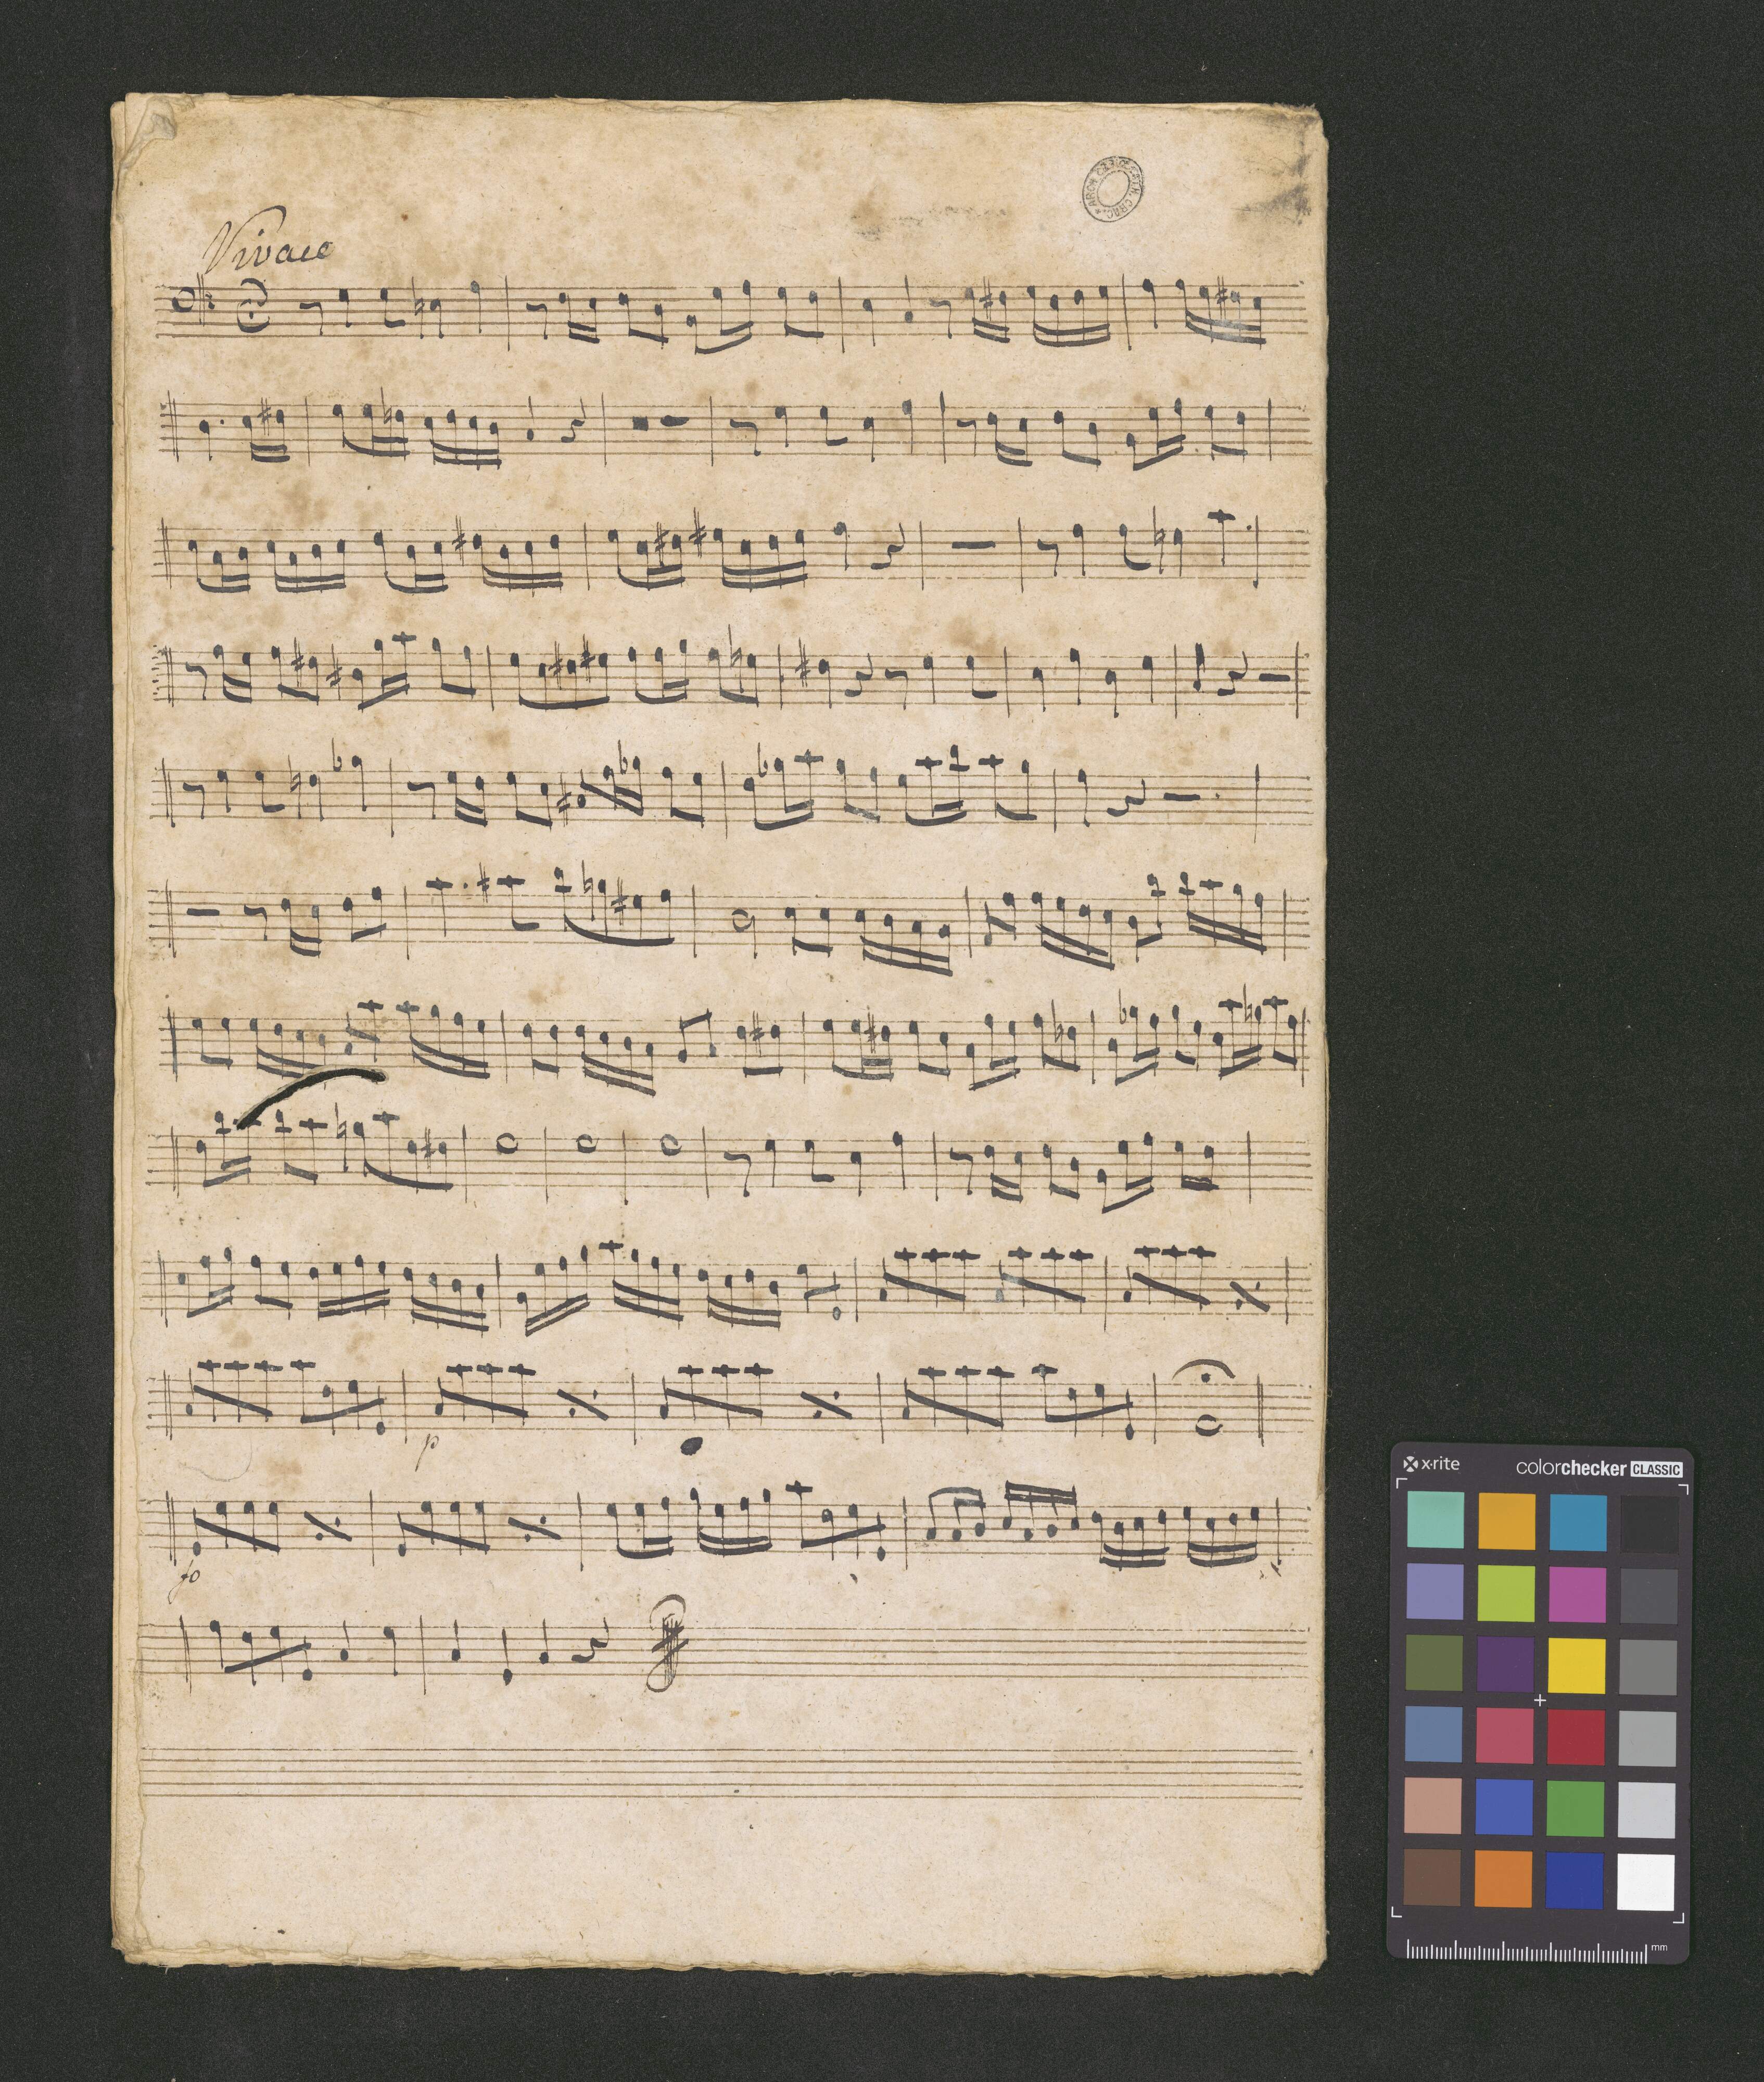 Vivace
p
fo
x-rite
colorchecker CLASSIC
mm